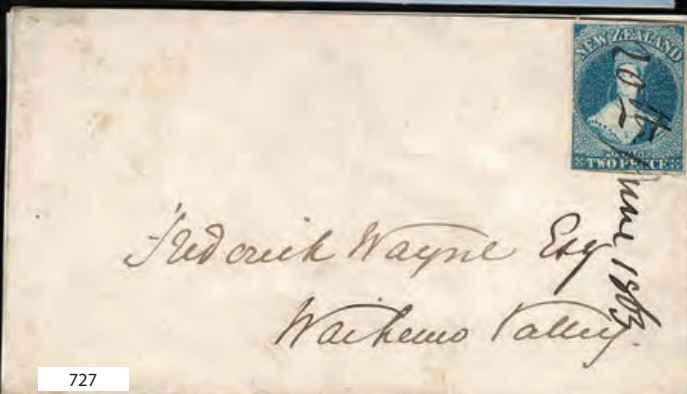 NEW ZEALAND
POSTAGE
TWO PENCE
20th June 1863
Frederick Wayne Esq
Waihemo Valley.
727